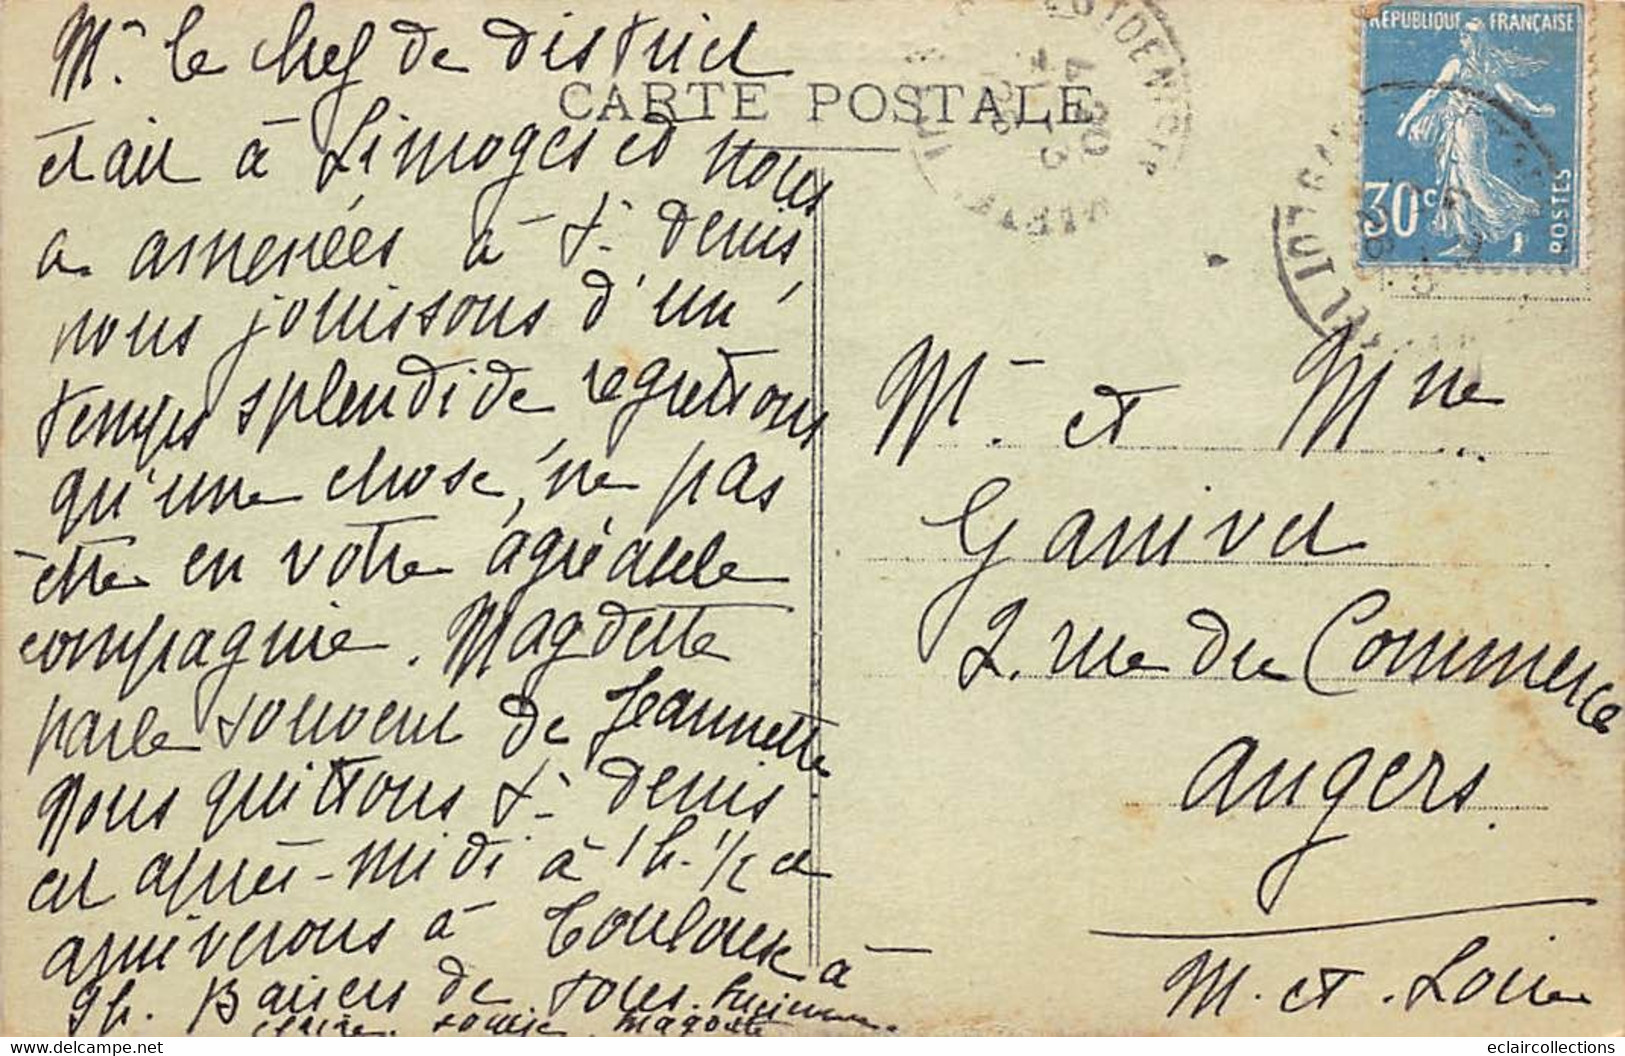 Mr le chef de district
CARTE POSTALE
était à Limoges et nous
a amenées à St Denis,
nous jouissons d'un
temps splendide regrettons
qu'une chose, ne pas
être en votre agréable
compagnie. Magdette
parle souvent de Jeannette.
Nous quittons St Denis
cet après-midi à 1h. 1/2 et
arriverons à Toulouse à
9h. Baisers de tous.
Claire. Louise. Magdette
REPUBLIQUE FRANÇAISE
30c
POSTES
Mr. et Mme
Ganivet
2. rue du Commerce
Angers.
M. et. Loire
eclaircollections